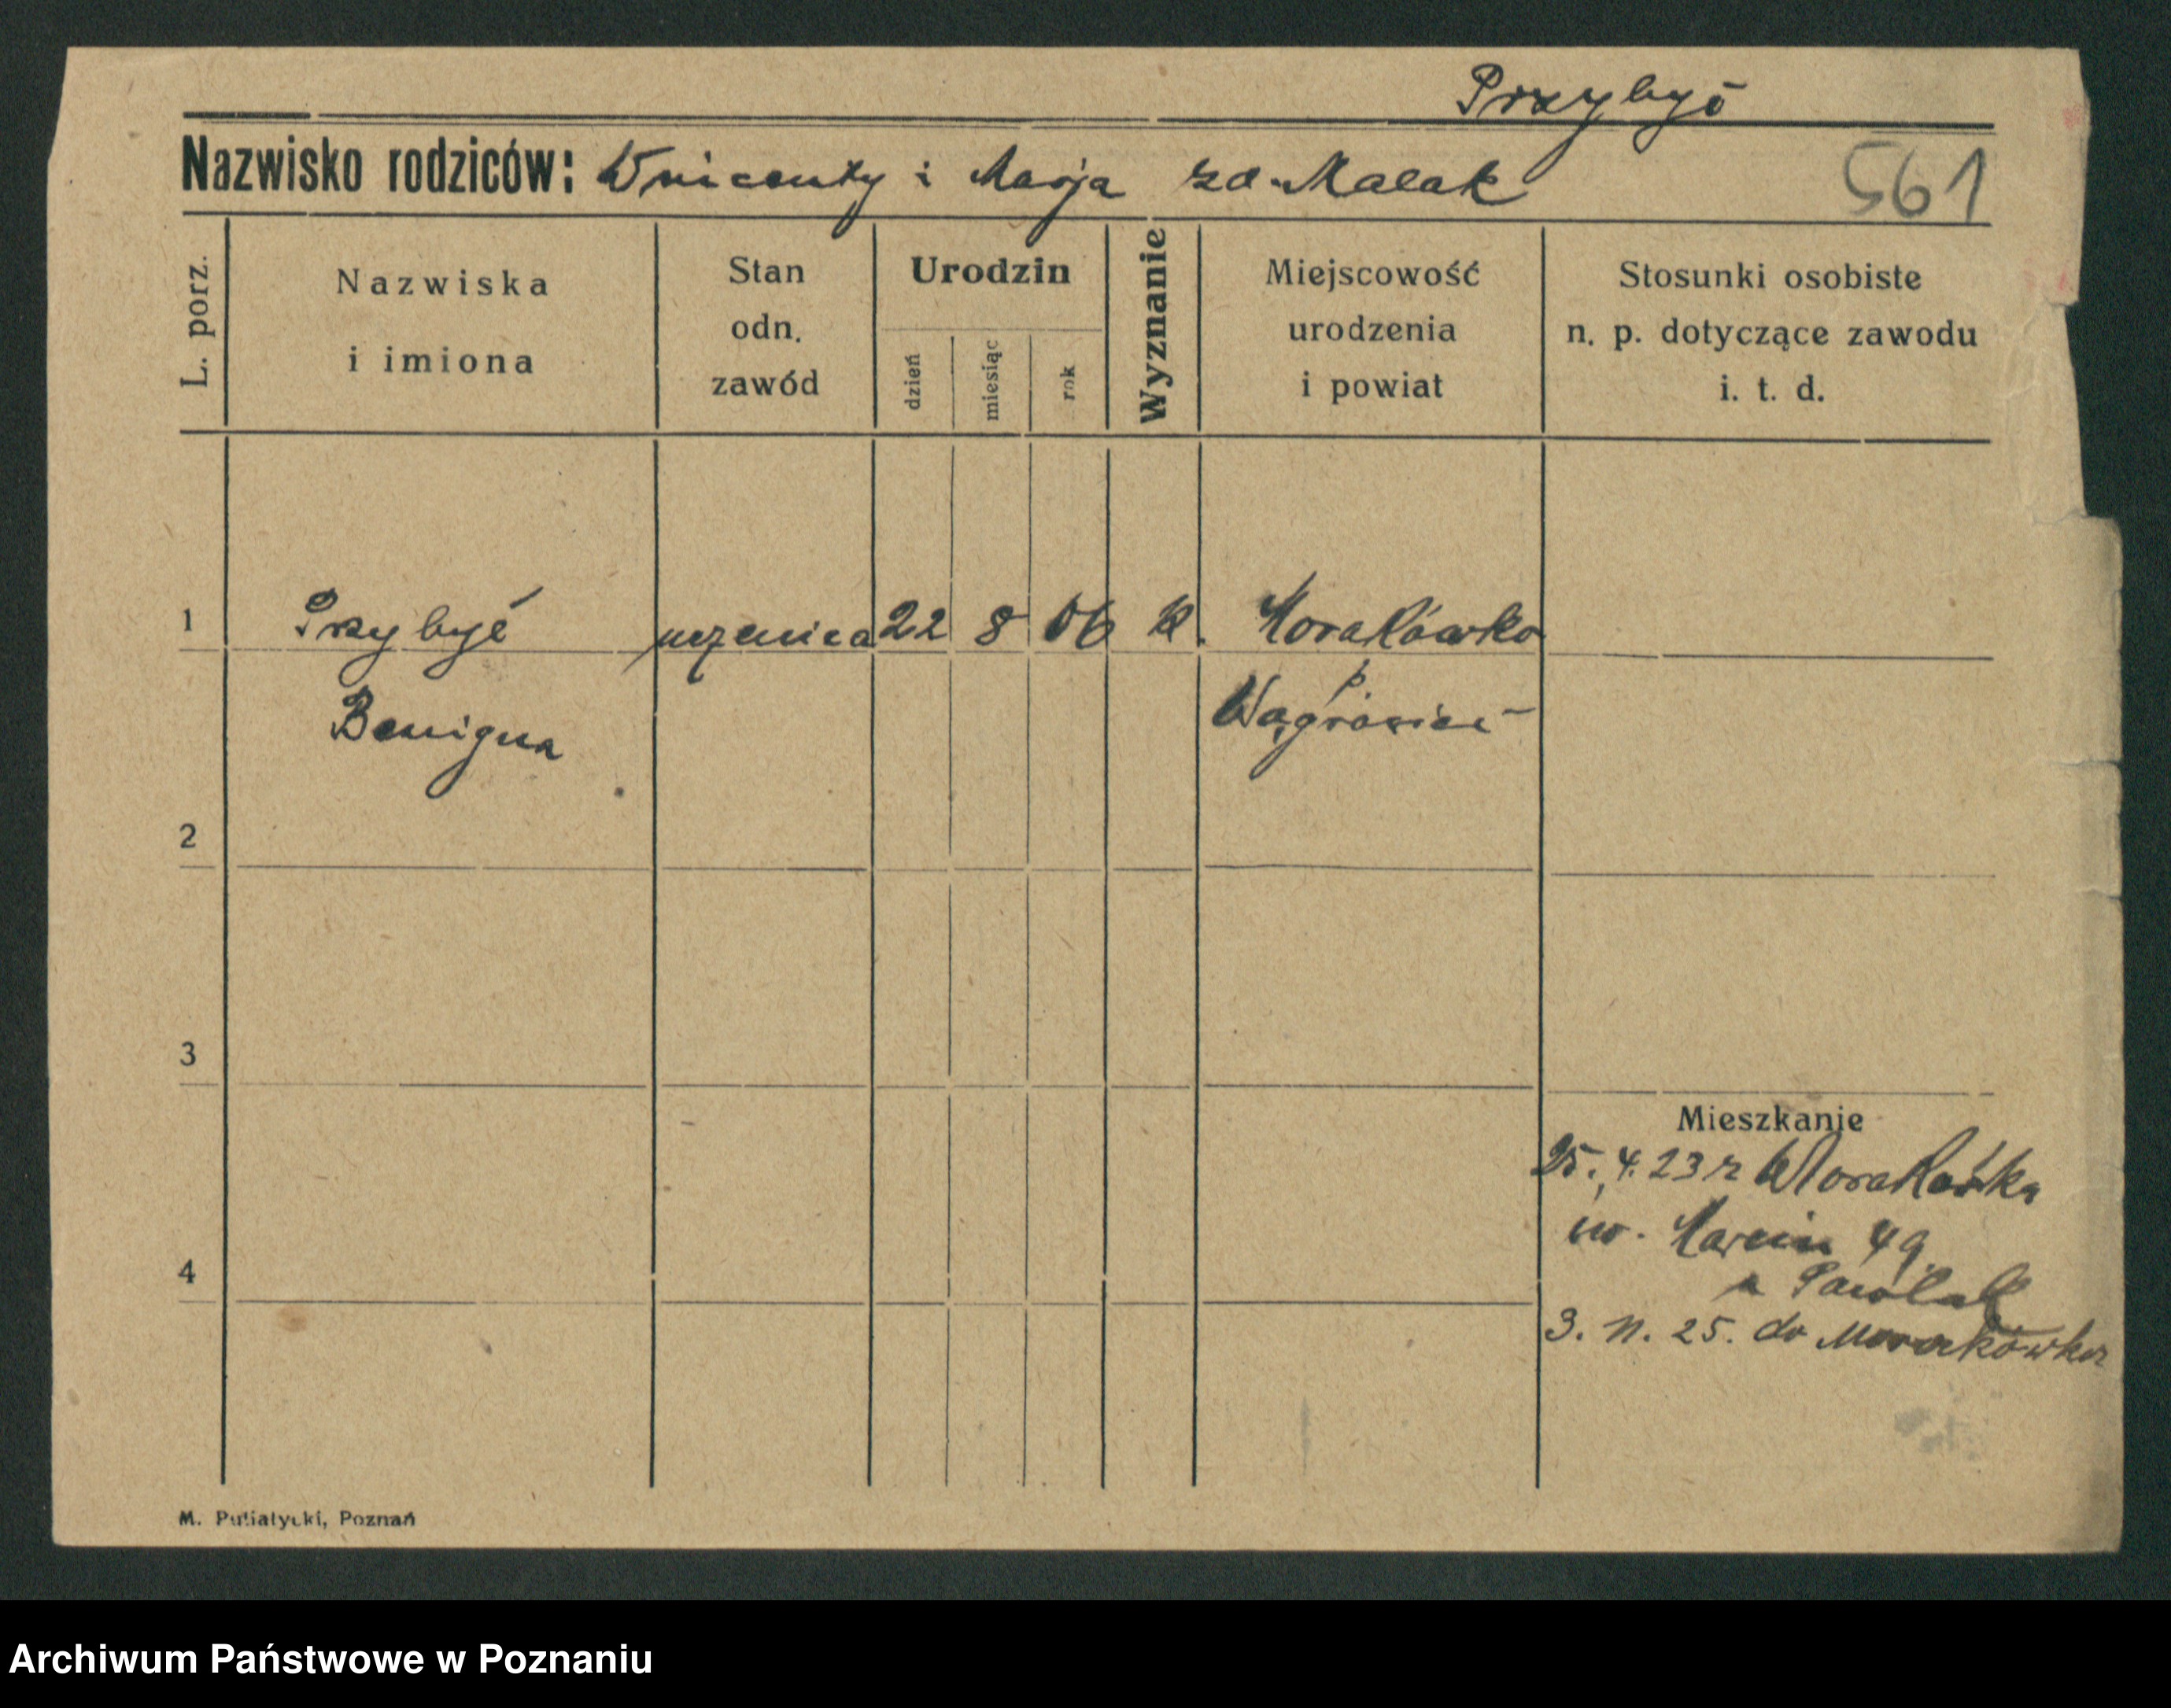 Przybyś
Nazwisko rodziców: Wincenty i Marja zd. Malak
561
L. porz.
Nazwiska
i imiona
Stan
odn.
zawód
Urodzin
dzień
miesiąc
rok
Wyznanie
Miejscowość
urodzenia
i powiat
Stosunki osobiste
n. p. dotyczące zawodu
i. t. d.
1 Przybyś uczenica 22 8 06 k. Morakówko
p.
Benigna Wągrowiec
2
3
Mieszkanie
25. 4. 23 z Morakówka
św. Marcin 49
4
u Pawlak
3. 11. 25. do Morakówka
M. Putiatycki, Poznań
Archiwum Państwowe w Poznaniu